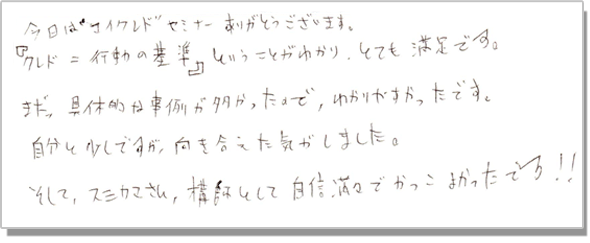 今日は"マイクレド"セミナーありがとうございます。
『クレド＝行動の基準』ということがわかり、とても満足です。
また、具体的な事例が多かったので、わかりやすかったです。
自分と少しですが、向き合えた気がしました。
そして、スミカマさん、構師として自信満々でかっこよかったです!!